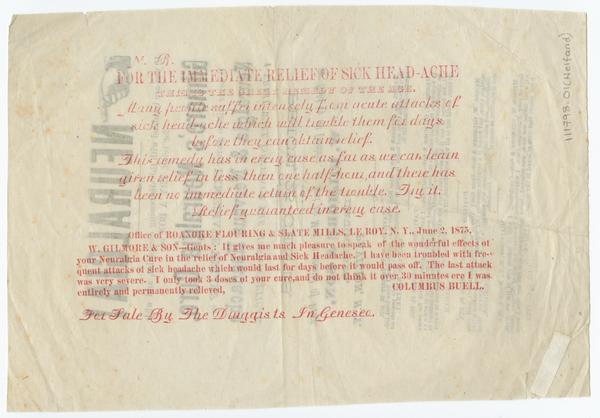 N. B.
FOR THE IMMEDIATE RELIEF OF SICK HEAD-ACHE
THIS IS THE GREAT REMEDY OF THE AGE.
Many people suffer intensely from acute attacks of
sick head-ache which will trouble them for days
before they can obtain relief.
This remedy has in every case as far as we can learn
given relief in less than one half-hour, and there has
been no immediate return of the trouble. Try it.
Relief guaranteed in every case.
Office of ROANOKE FLOURING & SLATE MILLS, LE ROY, N. Y., June 2, 1875.
W. GILMORE & SON—Gents: It gives me much pleasure to speak of the wonderful effects of
your Neuralgia Cure in the relief of Neuralgia and Sick Headache. I have been troubled with fre-
quent attacks of sick headache which would last for days before it would pass off. The last attack
was very severe. I only took 3 doses of your cure, and do not think it over 30 minutes ere I was
entirely and permanently relieved. COLUMBUS BUELL.
For Sale By The Druggists In Geneseo.
111798.01(Helfand)